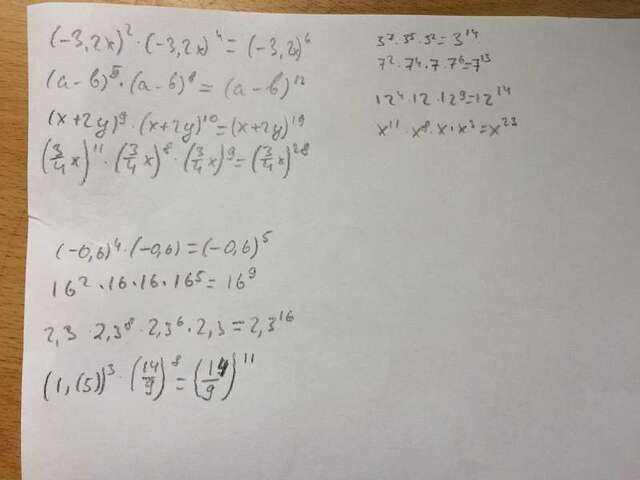 (-3,2x)² · (-3,2x)⁴ = (-3,2x)⁶
(a-b)⁵ · (a-b)⁸ = (a-b)¹²
(x+2y)⁹ · (x+2y)¹⁰ = (x+2y)¹⁹
(¾x)¹¹ · (¾x)⁸ · (¾x)⁹ = (¾x)²⁸
(-0,6)⁴ · (-0,6) = (-0,6)⁵
16² · 16 · 16 · 16⁵ = 16⁹
2,3 · 2,3⁸ · 2,3⁶ · 2,3 = 2,3¹⁶
(1,(5))³ · (14/9)⁸ = (14/9)¹¹
3⁷ · 3⁵ · 3² = 3¹⁴
7² · 7⁴ · 7 · 7⁶ = 7¹³
12⁴ · 12 · 12⁹ = 12¹⁴
x¹¹ · x⁸ · x · x³ = x²³